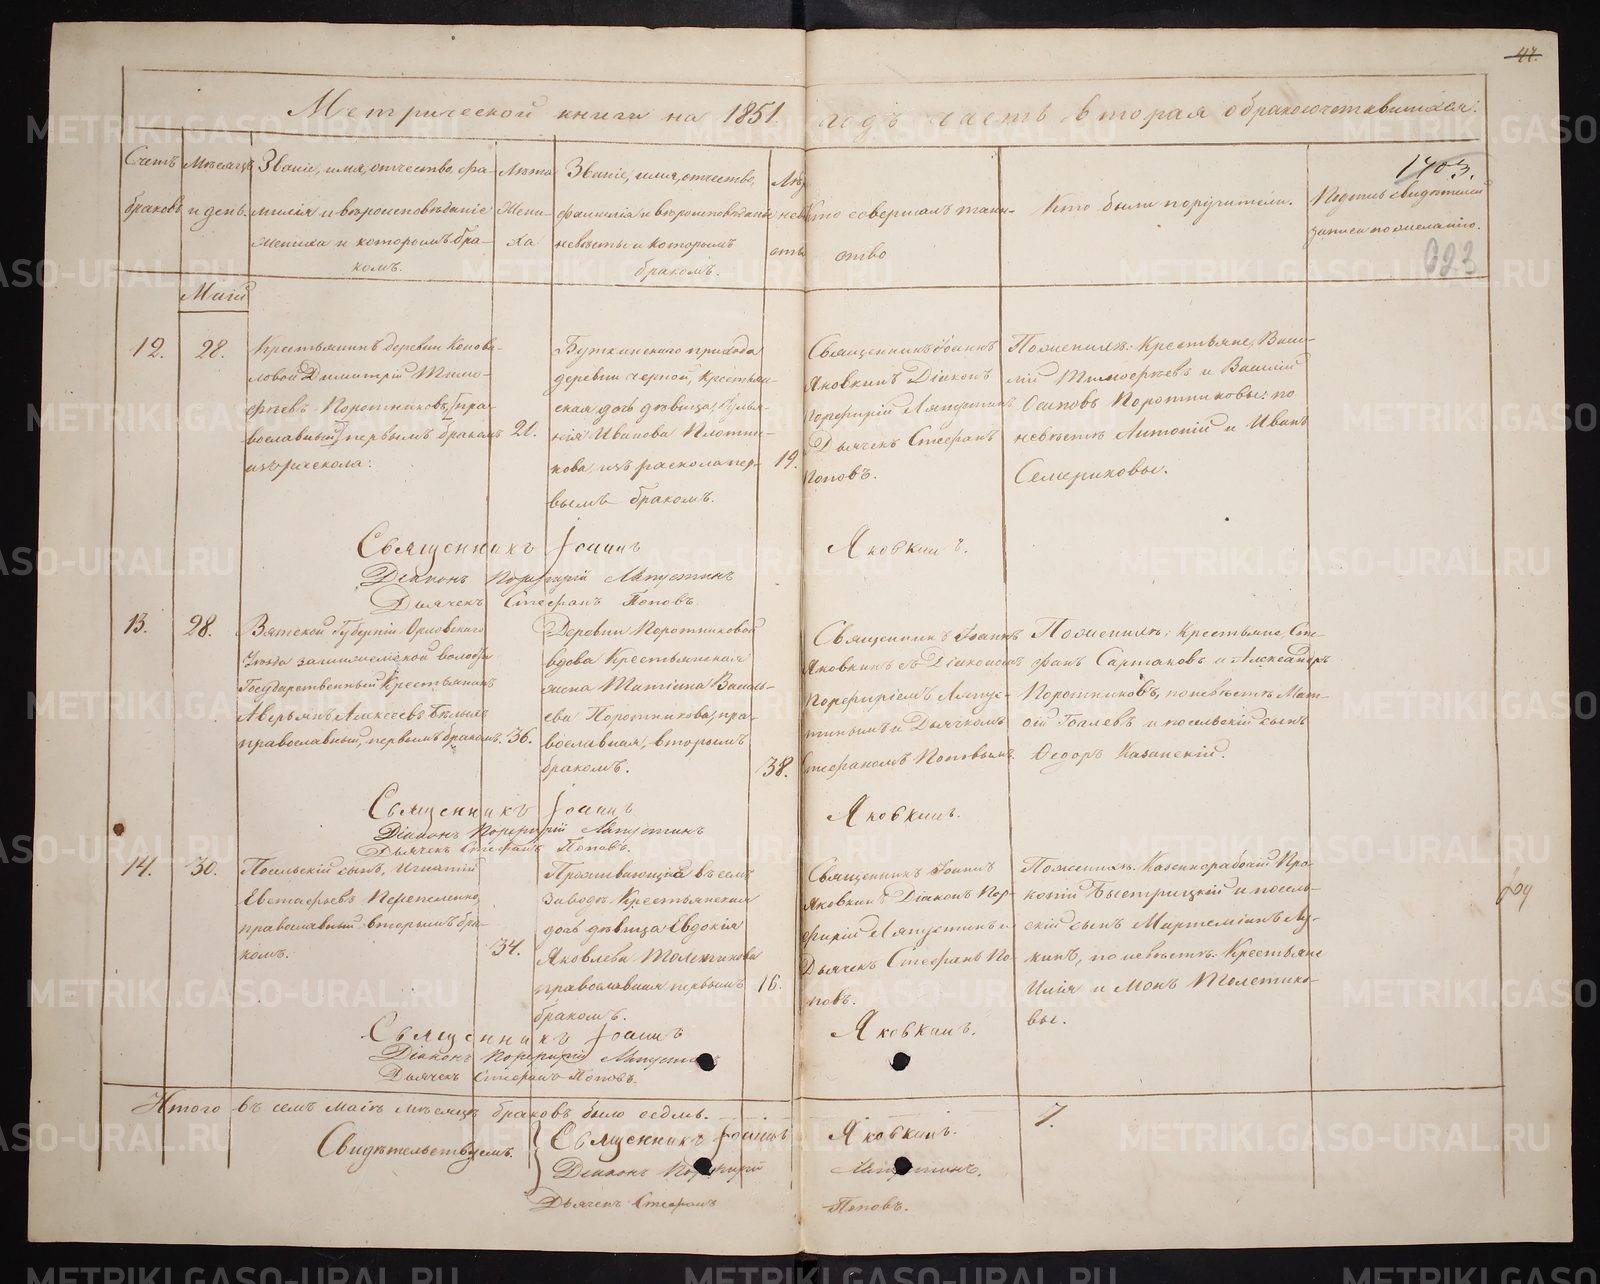 47.
Метрической книги на 1851. годъ часть вторая о бракосочетавшихся.
1703.
Счетъ браковъ
Мѣсяцъ и день.
Званіе, имя, отчество, фа-
милія и вѣроисповѣданіе
жениха и которымъ бра-
комъ.
Лѣта
жени-
ха
Званіе, имя, отчество,
фамилія и вѣроисповѣданіе
невѣсты и которымъ
бракомъ.
Лѣ
невѣ
сты
Кто совершалъ таин-
ство
Кто были поручители.
Подпись свидѣтелей
записи по желанію.
223
Маій
12.
28.
Крестьянинъ деревни
Димитрій Тимо-
фѣевъ Поротниковъ, пра-
вославный, первымъ бракомъ
изъ раскола.
21.
Буткинскаго прихода
деревни черной, крестьян-
ская дочь дѣвица,
Иванова Плотни-
кова, изъ раскола пер-
вымъ бракомъ.
19.
Священникъ Іоаннъ
Яковкинъ Діаконъ
Порфирій Ляпустинъ
Дьячекъ Стефанъ
Поповъ.
По женихѣ: Крестьяне, Васи-
лій Тимофѣевъ и Василій
Осиповъ Поротниковы: по
невѣстѣ Антоній и Иванъ
Семериковы.
Священникъ Іоаннъ Яковкинъ.
Діаконъ Порфирій Ляпустинъ
Дьячекъ Стефанъ Поповъ.
13.
28.
Вятской Губерніи Орловскаго
Уѣзда волости
Государственный Крестьянинъ
Аверьянъ Алексѣевъ Бѣлыхъ
православный, первымъ бракомъ.
36.
Деревни Поротниковой
вдова Крестьянская
жена Татіана Василь-
ева Поротникова, пра-
вославная, вторымъ
бракомъ.
38.
Священникъ Іоаннъ
Яковкинъ съ Діакономъ
Порфиріемъ Ляпус-
тинымъ и Дьячкомъ
Стефаномъ Поповымъ.
По женихѣ: Крестьяне, Сте-
фанъ Сартаковъ и Александръ
Поротниковъ, по невѣстѣ Мат-
ѳій и посельскій сынъ
Ѳедоръ Казанскій.
Священникъ Іоаннъ Яковкинъ.
Діаконъ Порфирій Ляпустинъ
Дьячекъ Стефанъ Поповъ.
14.
30.
Посельскій сынъ, Игнатій
Евстафьевъ Перепеленко,
православный вторымъ бра-
комъ.
34.
Проживающая въ семъ
заводѣ Крестьянская
дочь дѣвица Евдокія
Яковлева Толстикова
православная первымъ
бракомъ.
16.
Священникъ Іоаннъ
Яковкинъ Діаконъ Пор-
фирій Ляпустинъ и
Дьячекъ Стефанъ По-
повъ.
По женихѣ. Про-
копій Быстрицкій и посель-
скій сынъ Мартеміанъ Лу-
кинъ, по невѣстѣ. Крестьяне
Илія и Толстико-
вы.
Священникъ Іоаннъ Яковкинъ.
Діаконъ Порфирій Ляпустинъ
Дьячекъ Стефанъ Поповъ.
Итого въ семъ маіѣ мѣсяцѣ браковъ было седмь. 7.
Свидѣтельствуемъ.
Священникъ Іоаннъ Яковкинъ.
Діаконъ Порфирій Ляпустинъ.
Дьячекъ Стефанъ Поповъ.
METRIKI.GASO-URAL.RU